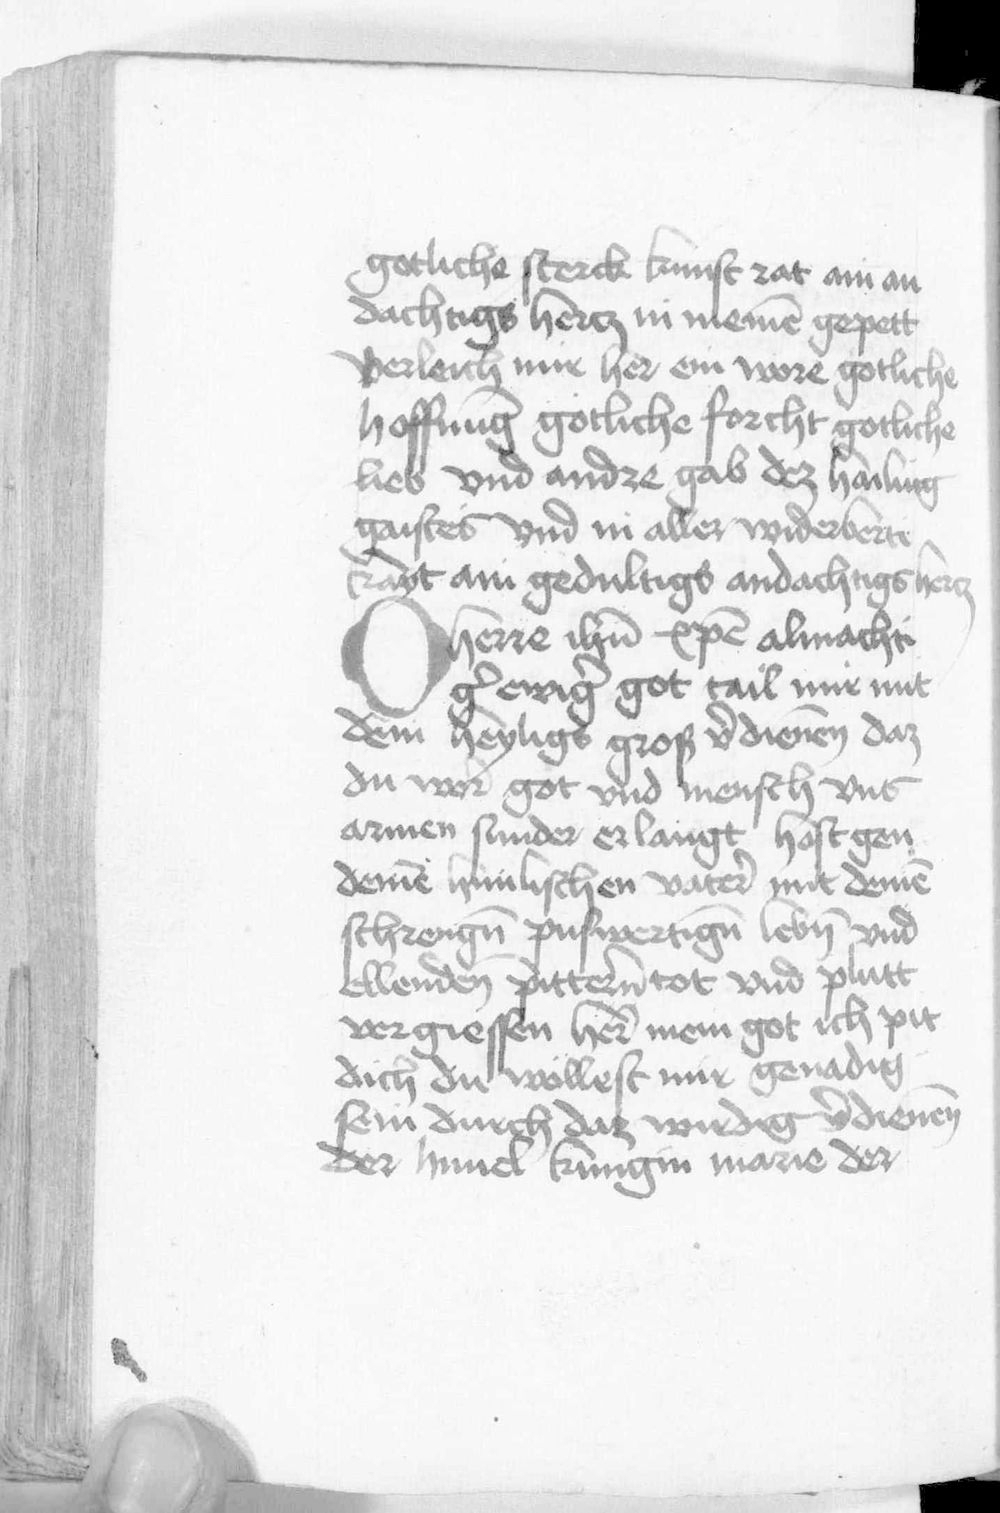 gotliche sterck kunst rat ain an
dachtigs hercz in meinē gepett
Verleich mir her ein wore gotliche
hoffung gotliche forcht gotliche
lieb vnd andre gab dez hailing
gaistes vnd in aller widerberti
kayt ain gedultigs andachtigs hercz
O herre ihū xp̄e almachti
g̉ ewig̉ got tail mir mit
dem heyligs groß v̉dienen daz
du wor got vnd mensch vns
armen sunder erlangt host gen
deinē himlischen vater mit deinē
schrengn̄ puswertign̄ lebn̄ vnd
ellenden pittern tot vnd plutt
vergiessen her mein got ich pit
dich du wöllest mir genadig
sein durch daz wirdig v̉dienen
der himel kungin marie der